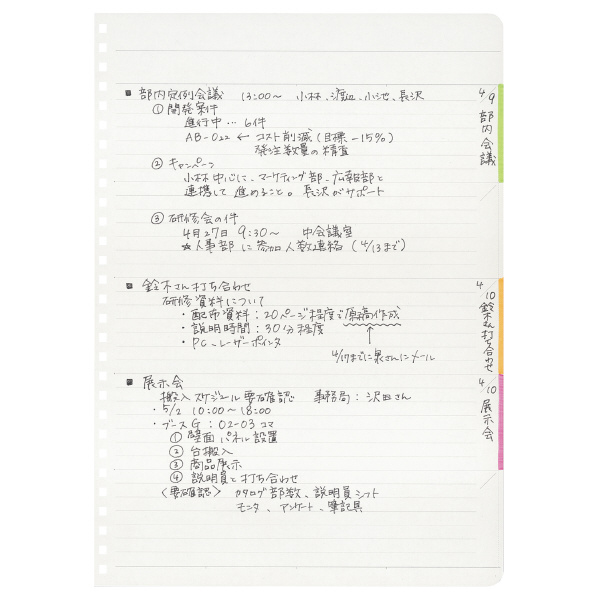 ■ 部内定例会議 13:00～ 小林、渡辺、小池、長沢
① 開発案件
進行中… 6件
AB-022 ← コスト削減（目標 -15%）
発注数量の精査
② キャンペーン
小林中心に、マーケティング部、広報部と
連携して進めること。長沢がサポート
③ 研修会の件
4月27日 9:30～ 中会議室
☆人事部に参加人数連絡（4/13まで）
■ 鈴木さん打ち合わせ
研修資料について
・配布資料：20ページ程度で原稿作成
・説明時間：30分程度
・PC、レーザーポインタ
4/17までに泉さんにメール
■ 展示会
搬入スケジュール要確認 事務局：沢田さん
・5/2 10:00～18:00
・ブースG：02-03コマ
① 壁面パネル設置
② 台搬入
③ 商品展示
④ 説明員と打ち合わせ
〈要確認〉カタログ部数、説明員シフト
モニタ、アンケート、筆記具
4/9 部内会議
4/10 鈴木さん打ち合わせ
4/10 展示会